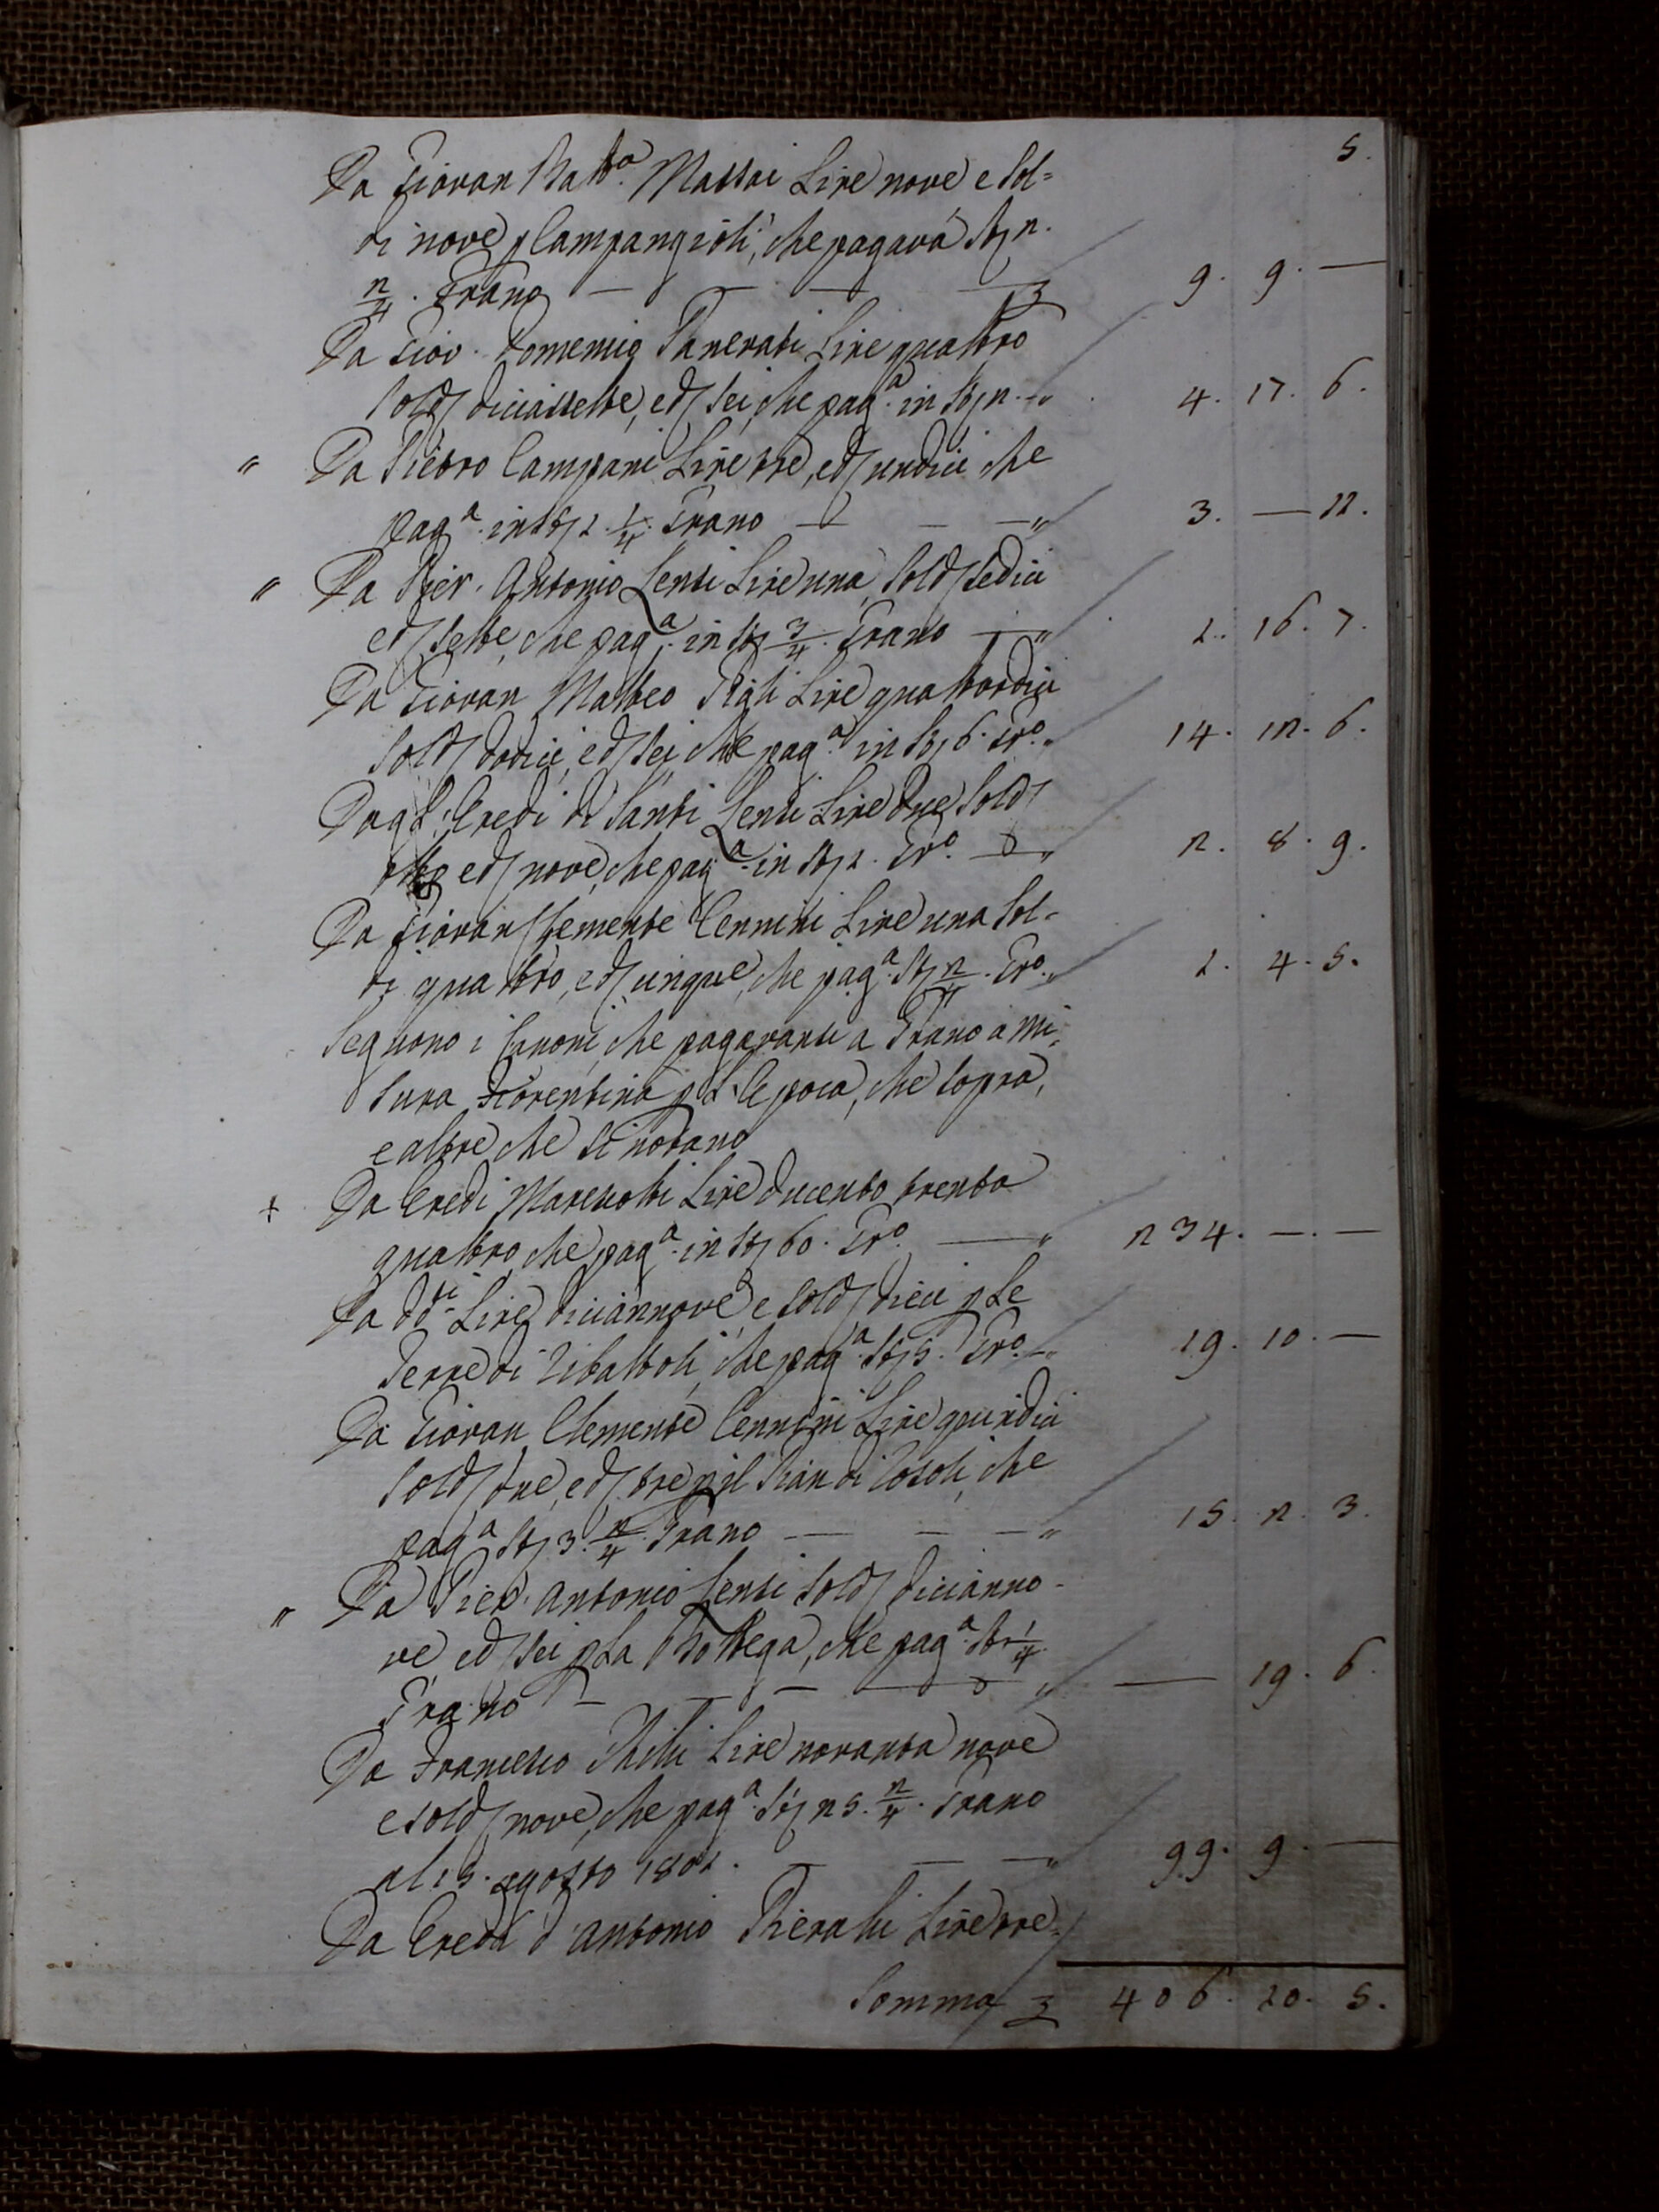 5.
Da Giovan Batta. Massai Lire nove e Sol=
di nove p Campangioli, che pagava Stj 2.
2/4. Grano — — — — 9. 9. —
Da Giov. Domenico Pancrati Lire quattro
Sold diciassette, e d sei, che paga. in Stj 2. — 4. 17. 6.
" Da Pietro Campani Lire tre, e d undici che
paga. in Stj 1. 1/4. Grano — — — 3. — 11.
" Da Pier. Antonio Lensi Lire una, Sold sedici
e d sette, che paga. in Stj 3/4. Grano — 1. 16. 7.
Da Giovan Matteo Lire quattordici
Sold dodici, e d sei che paga. in Stj 6. Gro. 14. 12. 6.
Dagl' Eredi di Santi Lensi Lire due Sold
otto e d nove, che paga. in Stj 1. Gro. — 2. 8. 9.
Da Giovan Clemente Cennini Lire una Sol=
di quattro, e d cinque, che paga. Stj 2/4. Gro. 1. 4. 5.
Seguono i Canoni che pagavansi a Grano a Mi=
sura Fiorentina p l'Epoca, che sopra,
e altre che si notano
+ Da Eredi Marescotti Lire ducento trenta
quattro, che paga. in Stj 60. Gro. — 234. —. —
Da ddti. Lire diciannove e Sold dieci p Le
Terre di che paga. Stj 5. Gro. — 19. 10. —
Da Giovan Clemente Cennini Lire quindici
Sold due, e d tre p il Pian di che
paga. Stj 3. 2/4. Grano — — — 15. 2. 3.
" Da Pier. Antonio Lensi Sold dicianno-
ve, e d sei p La Bottega, che paga. Stj 1/4.
Grano — — — — — 19. 6.
Da Francesco Lire novanta nove
e sold nove, che paga. Stj 25. 2/4. Grano
al 15. Agosto 1801. — — — 99. 9. —
Da Eredi d'Antonio Pieralli Lire tre
Somma 406. 10. 5.